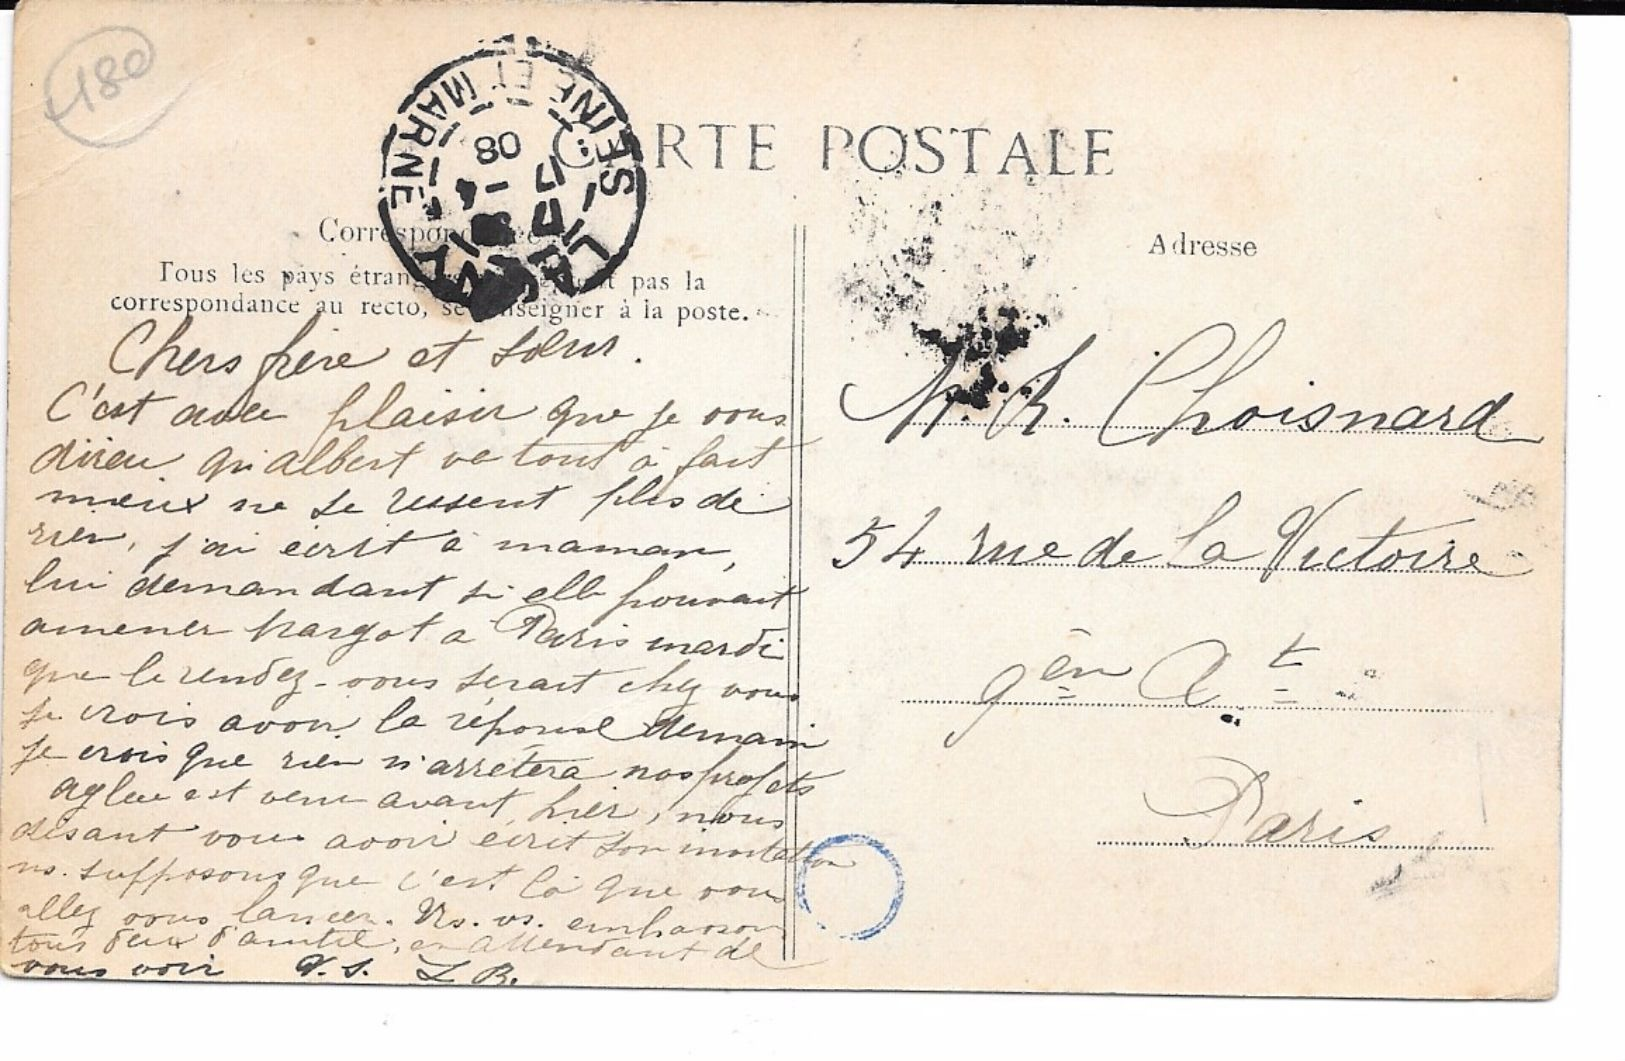 180
SEINE ET MARNE
08
CARTE POSTALE
Correspondance
Tous les pays étrangers pas la
correspondance au recto, se renseigner à la poste.
Chers frère et sœur.
C'est avec plaisir que je vous
dirai qu'albert va tout à fait
mieux ne se ressent plus de
rien, j'ai écrit à maman,
lui demandant si elle pouvait
amener Margot a Paris mardi
que le rendez-vous serait chez vous
je crois avoir la réponse demain
je crois que rien n'arrêtera nos projets
est venu avant hier, nous
disant vous avoir écrit son invitation
ns. supposons que c'est là que vous
allez vous lancer. Ns. vs. embrassons
tous deux d'amitié, en attendant de
vous voir V. S. L B.
Adresse
M. R. Choisnard
54 rue de la Victoire
gén At
Paris